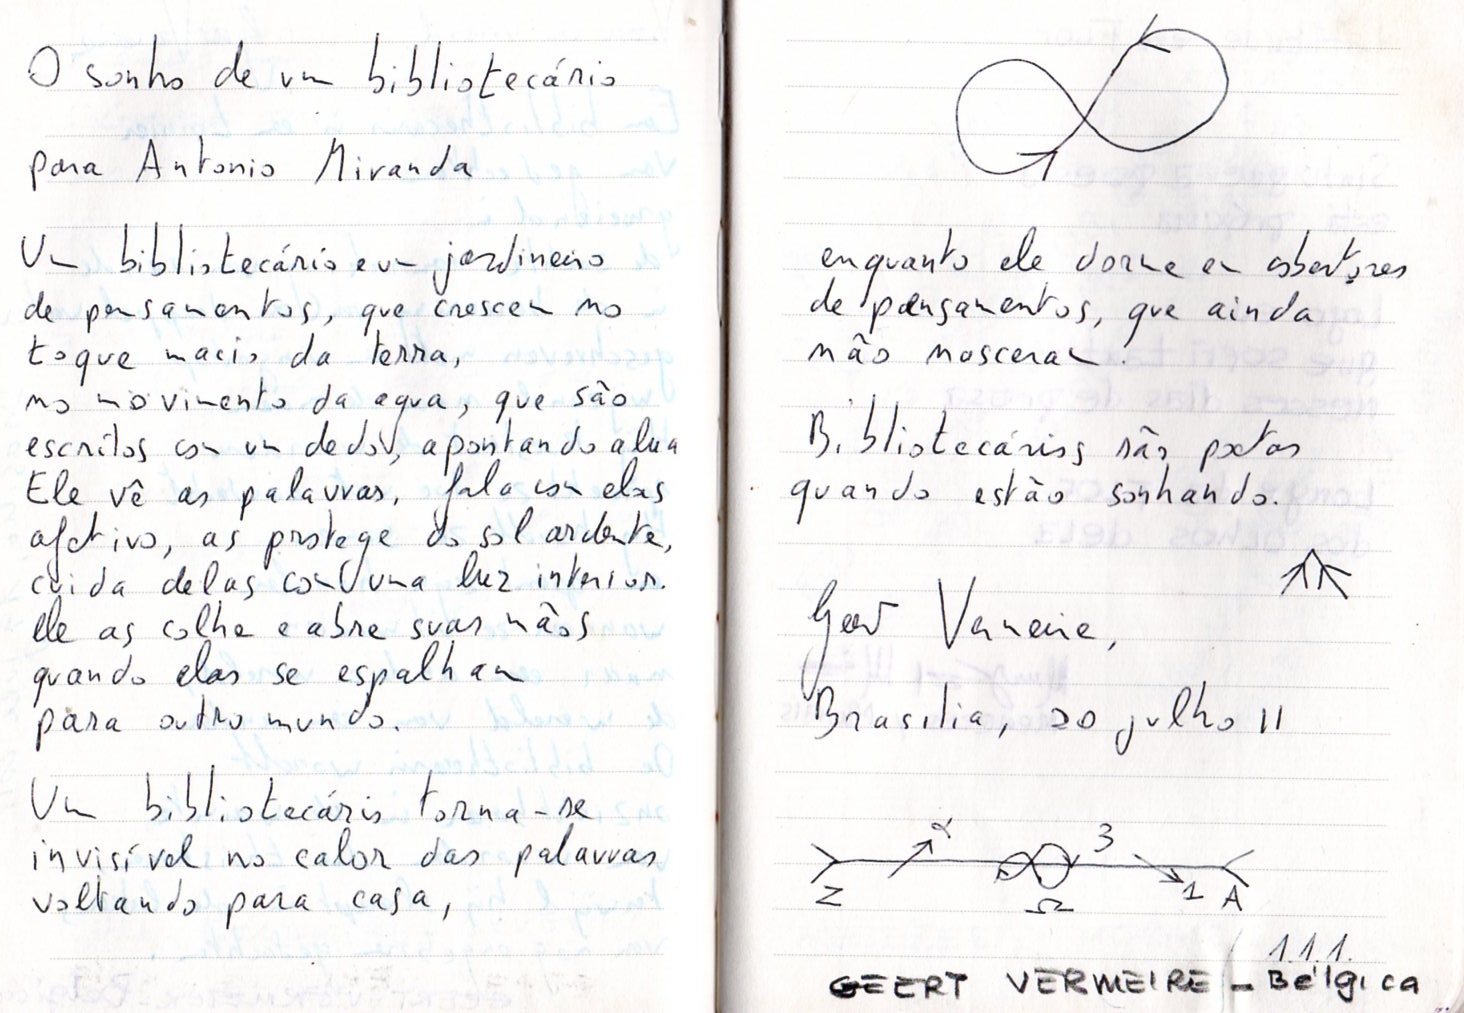 O sonho de um bibliotecário
para Antonio Miranda
Um bibliotecário e um jardineiro
de pensamentos, que crescem no
toque macio da terra,
no movimento da agua, que são
escritos com um dedo, apontando a lua
Ele vê as palavras, fala com elas
afetivo, as protege do sol ardente,
cuida delas com uma luz interior.
Ele as colhe e abre suas mãos
quando elas se espalham
para outro mundo.
Um bibliotecário torna-se
invisível no calor das palavras
voltando para casa,
enquanto ele dorme em cobertores
de pensamentos, que ainda
não nasceram.
Bibliotecários são poetas
quando estão sonhando.
Geert Vermeire,
Brasilia, 20 julho 11
α 3
Z Ω 1 A
1.1.1.
GEERT VERMEIRE - Bélgica